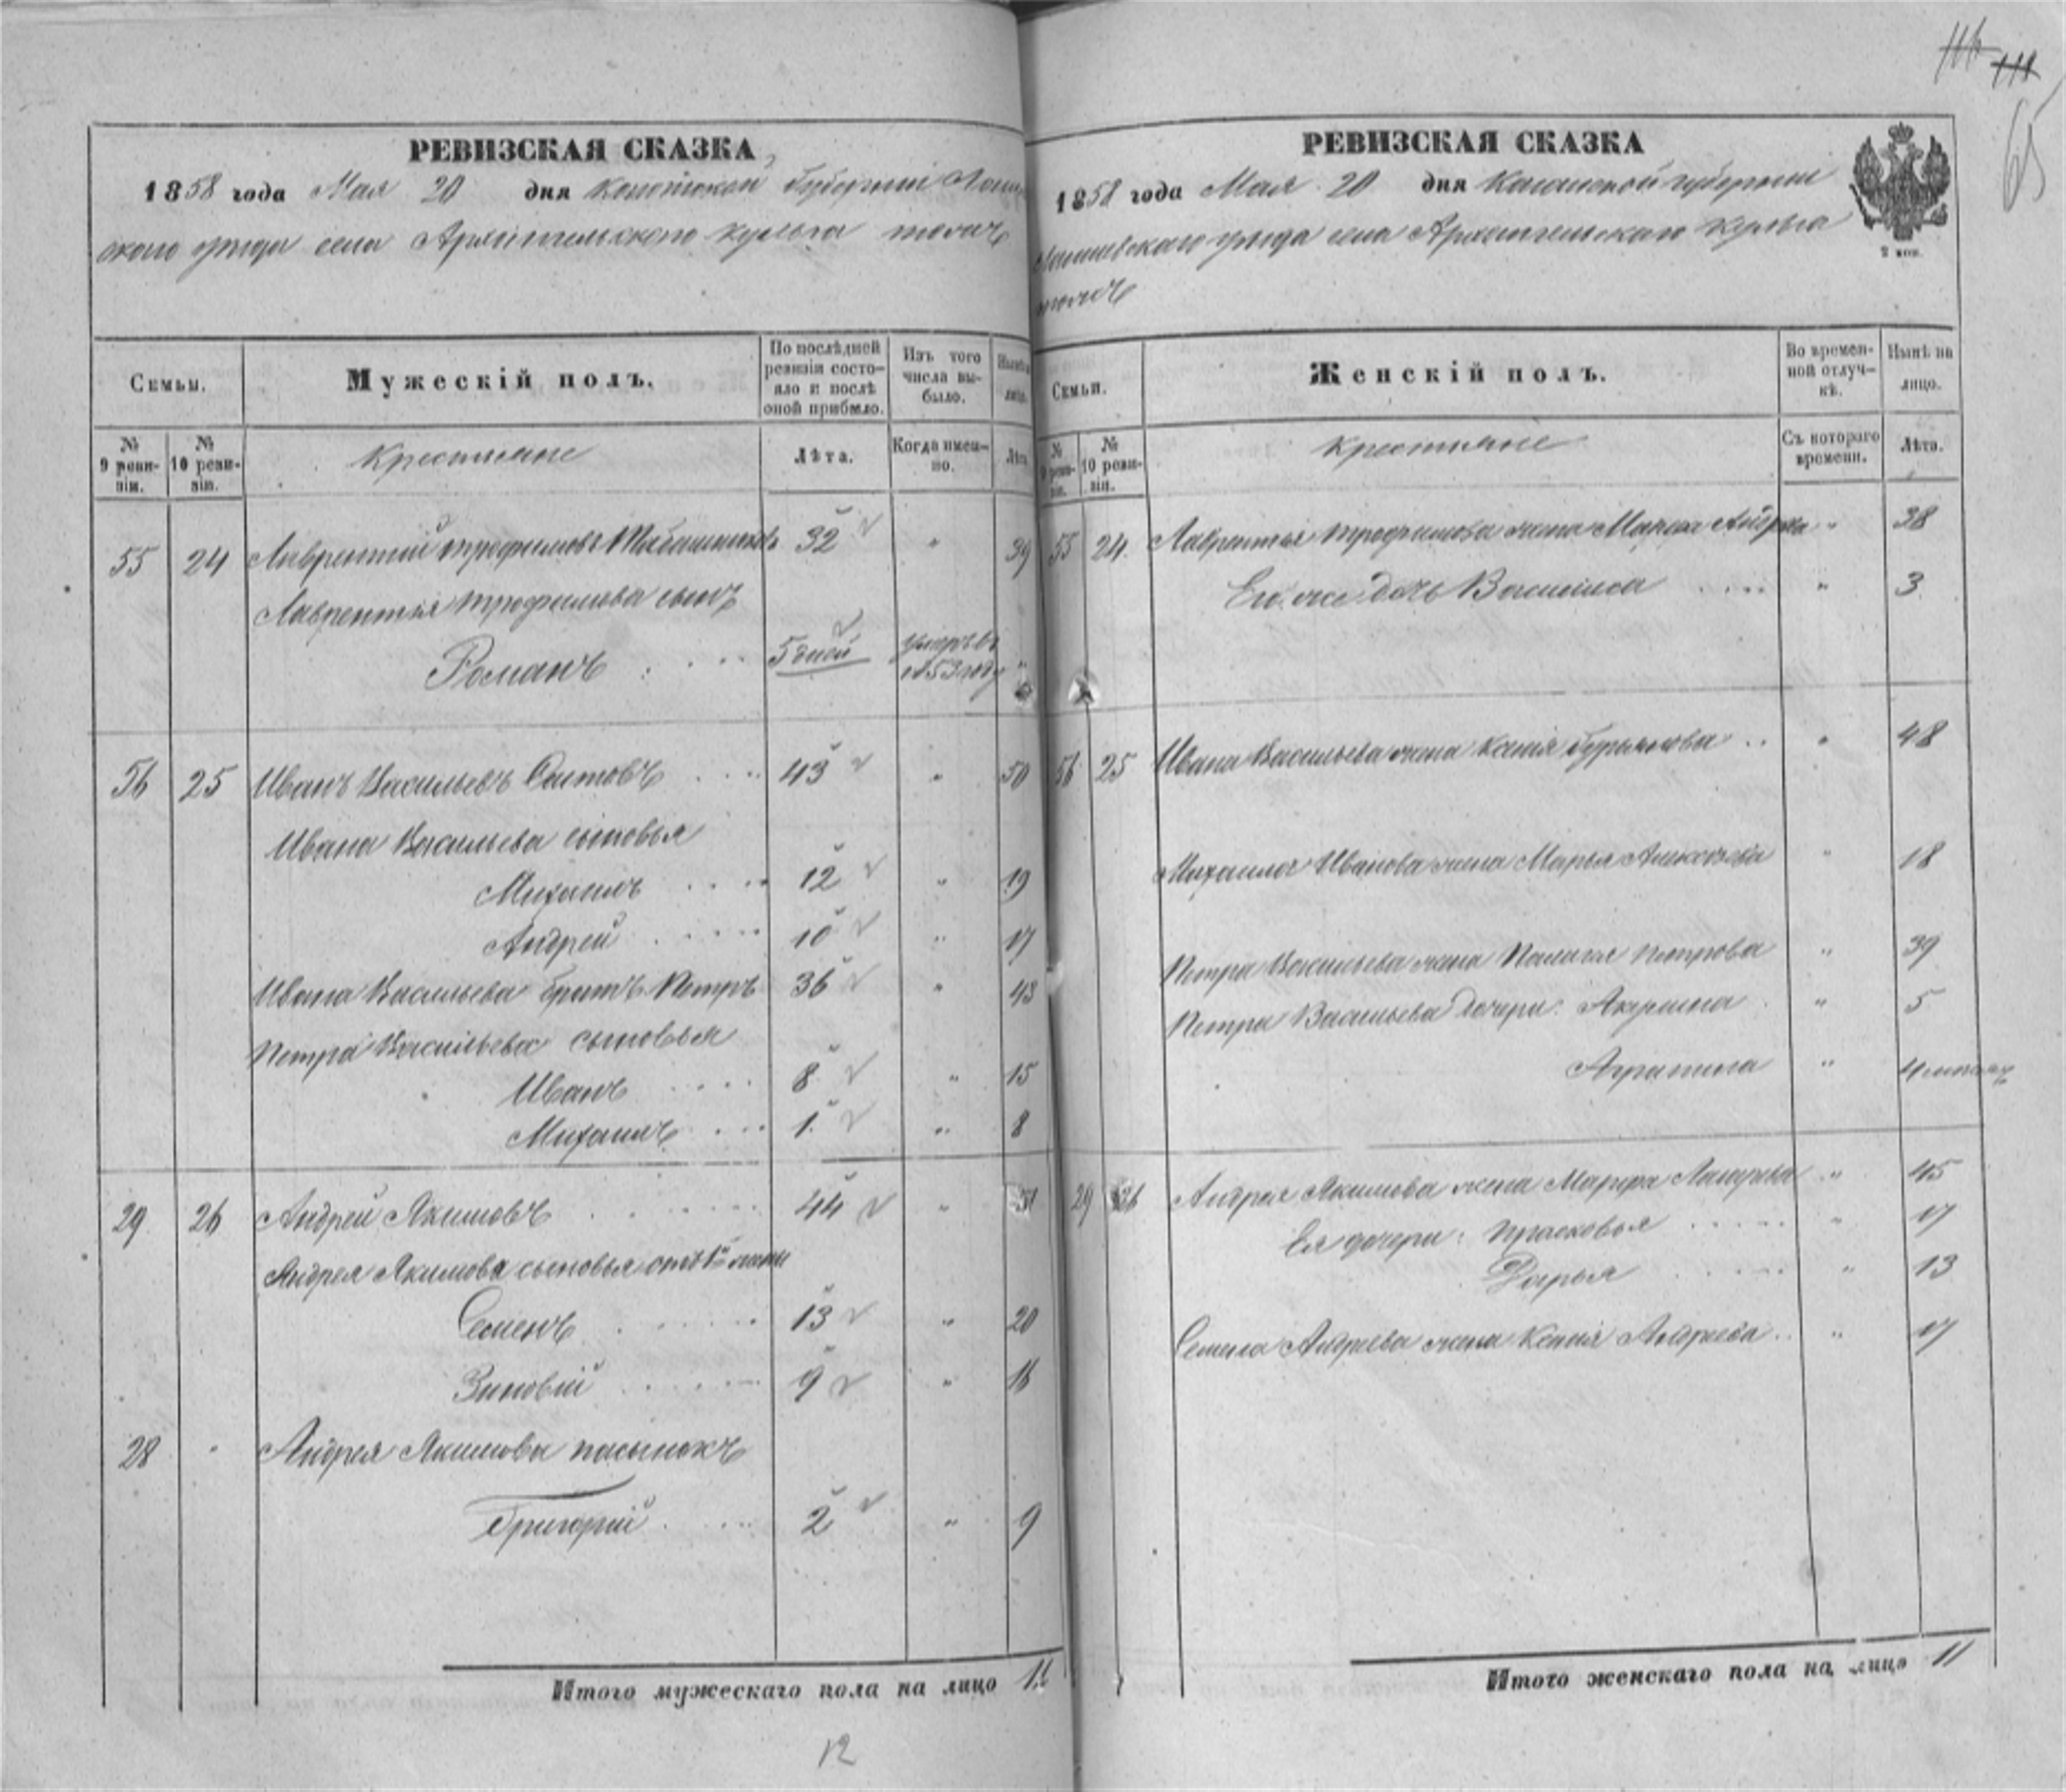 116 111
65
РЕВИЗСКАЯ СКАЗКА
1858 года Мая 20 дня Казанской губерніи
скаго уѣзда села Архангельского Кульга тожъ
Семьи.
Мужескій полъ.
По послѣдней ревизіи состояло и послѣ оной прибыло.
Изъ того числа выбыло.
№ 9 ревизіи.
№ 10 ревизіи.
Крестьяне
Лѣта.
Когда именно.
Лѣта
55 24 Лаврентій Трофимовъ 32 " 39
Лаврентья Трофимова сынъ
Романъ 5 дней умеръ въ 1853 году "
56 25 Иванъ Васильевъ Саитовъ 43 " 50
Ивана Васильева сыновья
Михаилъ 12 " 19
Андрей 10 " 17
Ивана Васильева братъ Петръ 36 " 43
Петра Васильева сыновья
Иванъ 8 " 15
Михаилъ 1 " 8
29 26 Андрей Якимовъ 44 " 51
Андрея Якимова сыновья отъ 1й жены
Семенъ 13 " 20
Зиновій 9 " 16
28 " Андрея Якимова пасынокъ
Григорій 2 " 9
Итого мужескаго пола на лицо 12
12
РЕВИЗСКАЯ СКАЗКА
1858 года Мая 20 дня Казанской губерніи
Лаишевскаго уѣзда села Архангельскаго Кульга
тожъ
2 коп.
Семьи.
Женскій полъ.
Во временной отлучкѣ.
Нынѣ на лицо.
№ 9 ревизіи.
№ 10 ревизіи.
Крестьяне
Съ котораго времени.
Лѣта.
55 24 Лаврентья Трофимова жена " 38
Его же дочь Василиса " 3
56 25 Ивана Васильева жена Ксенія Гурьянова " 48
Михаила Иванова жена Марья Алексѣева " 18
Петра Васильева жена Палагея Петрова " 39
Петра Васильева дочери: Акулина " 5
" 4 мѣсяц
29 26 Андрея Якимова жена Марфа " 45
Ея дочери: Прасковья " 17
Дарья " 13
Семена Андреева жена Ксенія Андреева " 17
Итого женскаго пола на лицо 11